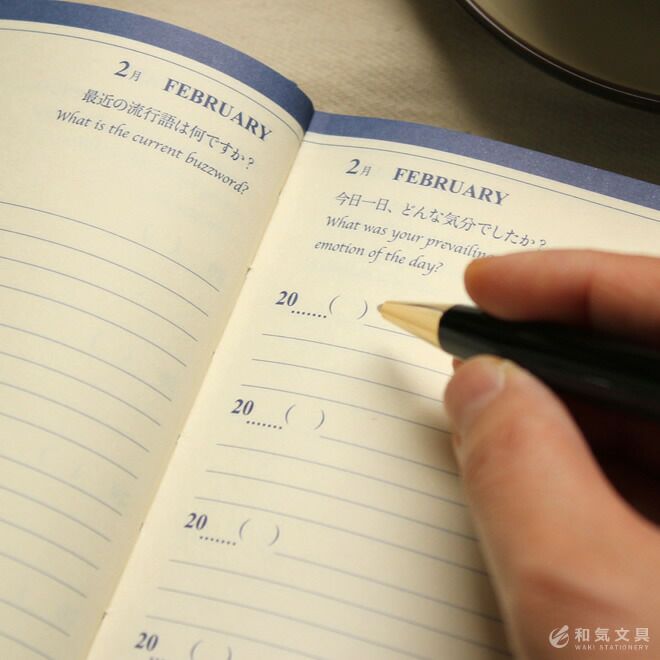 2月 FEBRUARY
最近の流行語は何ですか?
What is the current buzzword?
2月 FEBRUARY
今日一日、どんな気分でしたか?
What was your prevailing
emotion of the day?
20......( )
20......( )
20......( )
20......( )
和気文具
WAKI STATIONERY